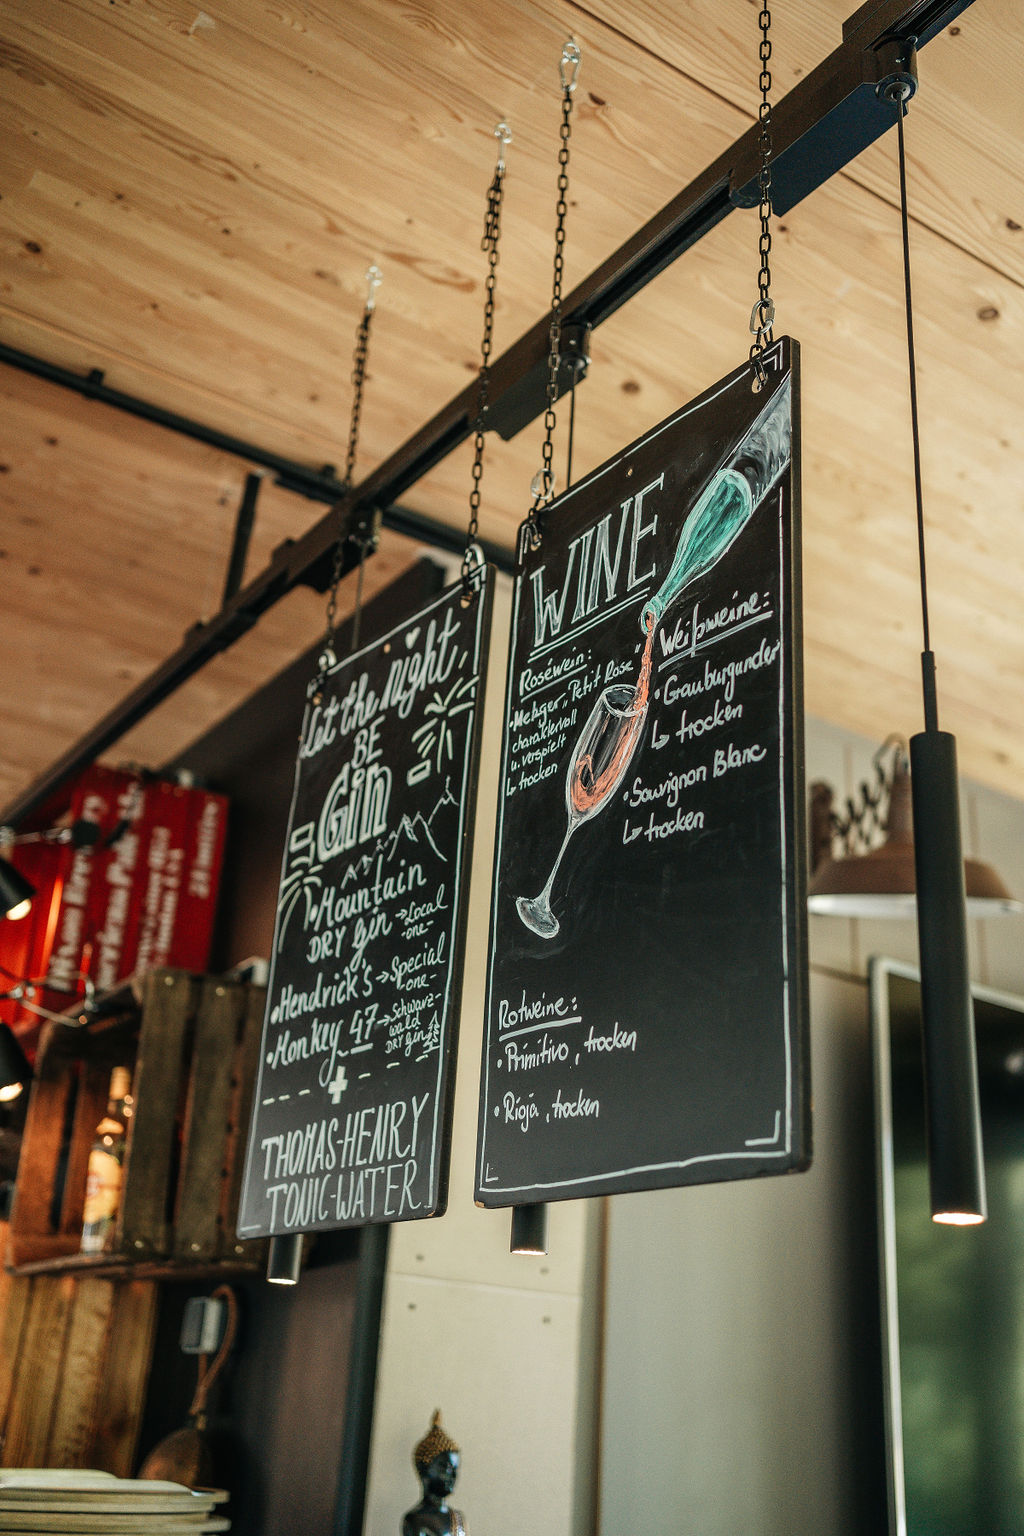 Let the night
BE
Gin
• Mountain
DRY gin → Local
-one-
• Hendrick's → Special
-one-
• Monkey 47 → Schwarz-
wald
DRY gin
+
THOMAS-HENRY
TONIC-WATER
WINE
Roséwein:
• Metzger „Petit Rose"
charaktervoll
u. verspielt
↳ trocken
Weißweine:
• Grauburgunder
↳ trocken
• Sauvignon Blanc
↳ trocken
Rotweine:
• Primitivo, trocken
• Rioja, trocken